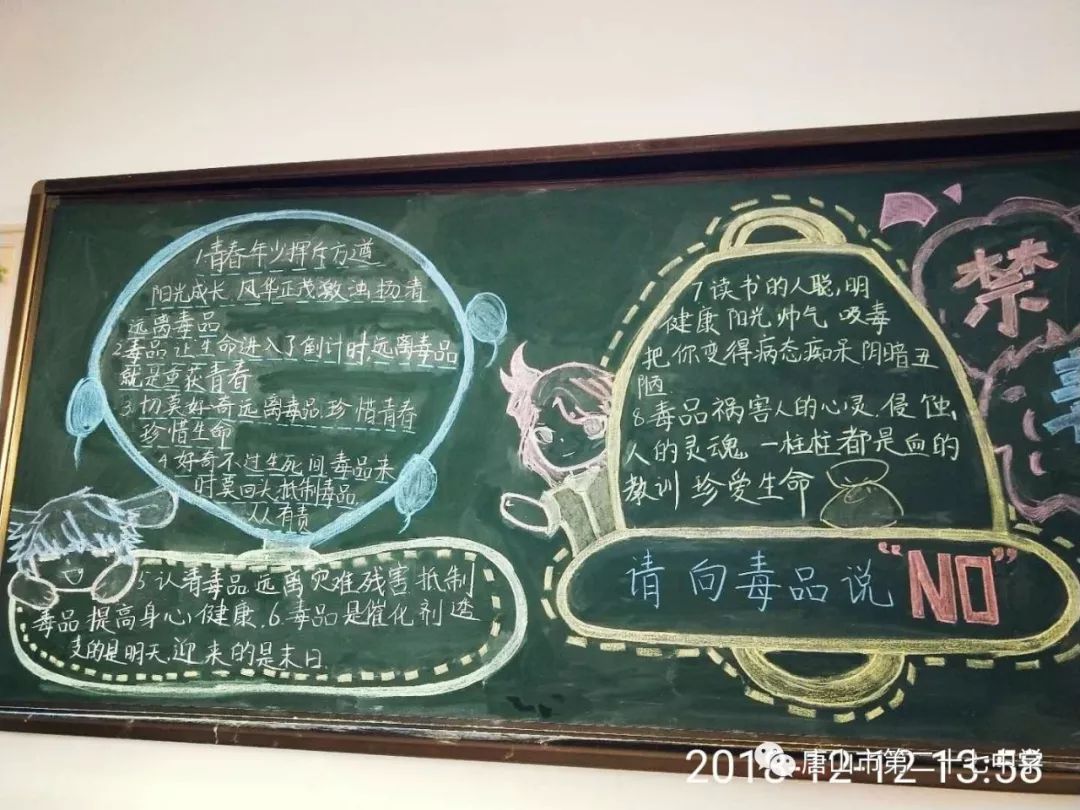 1青春年少挥斥方遒
阳光成长.风华正茂激浊扬清
远离毒品
2毒品让生命进入了倒计时.远离毒品
就是重获青春
3.切莫好奇远离毒品.珍惜青春
珍惜生命
4.好奇不过生死间.毒品来
时莫回头.抵制毒品
人人有责
5.认清毒品远离灾难残害.抵制
毒品提高身心健康.6.毒品是催化剂透
支的是明天.迎来的是末日.
7读书的人聪明
健康阳光帅气 吸毒
把你变得病态痴呆阴暗丑
陋
8.毒品祸害人的心灵.侵蚀
人的灵魂 一桩桩都是血的
教训 珍爱生命
请向毒品说“NO”
禁
毒
唐山市第二十七中学
12-12-13:58